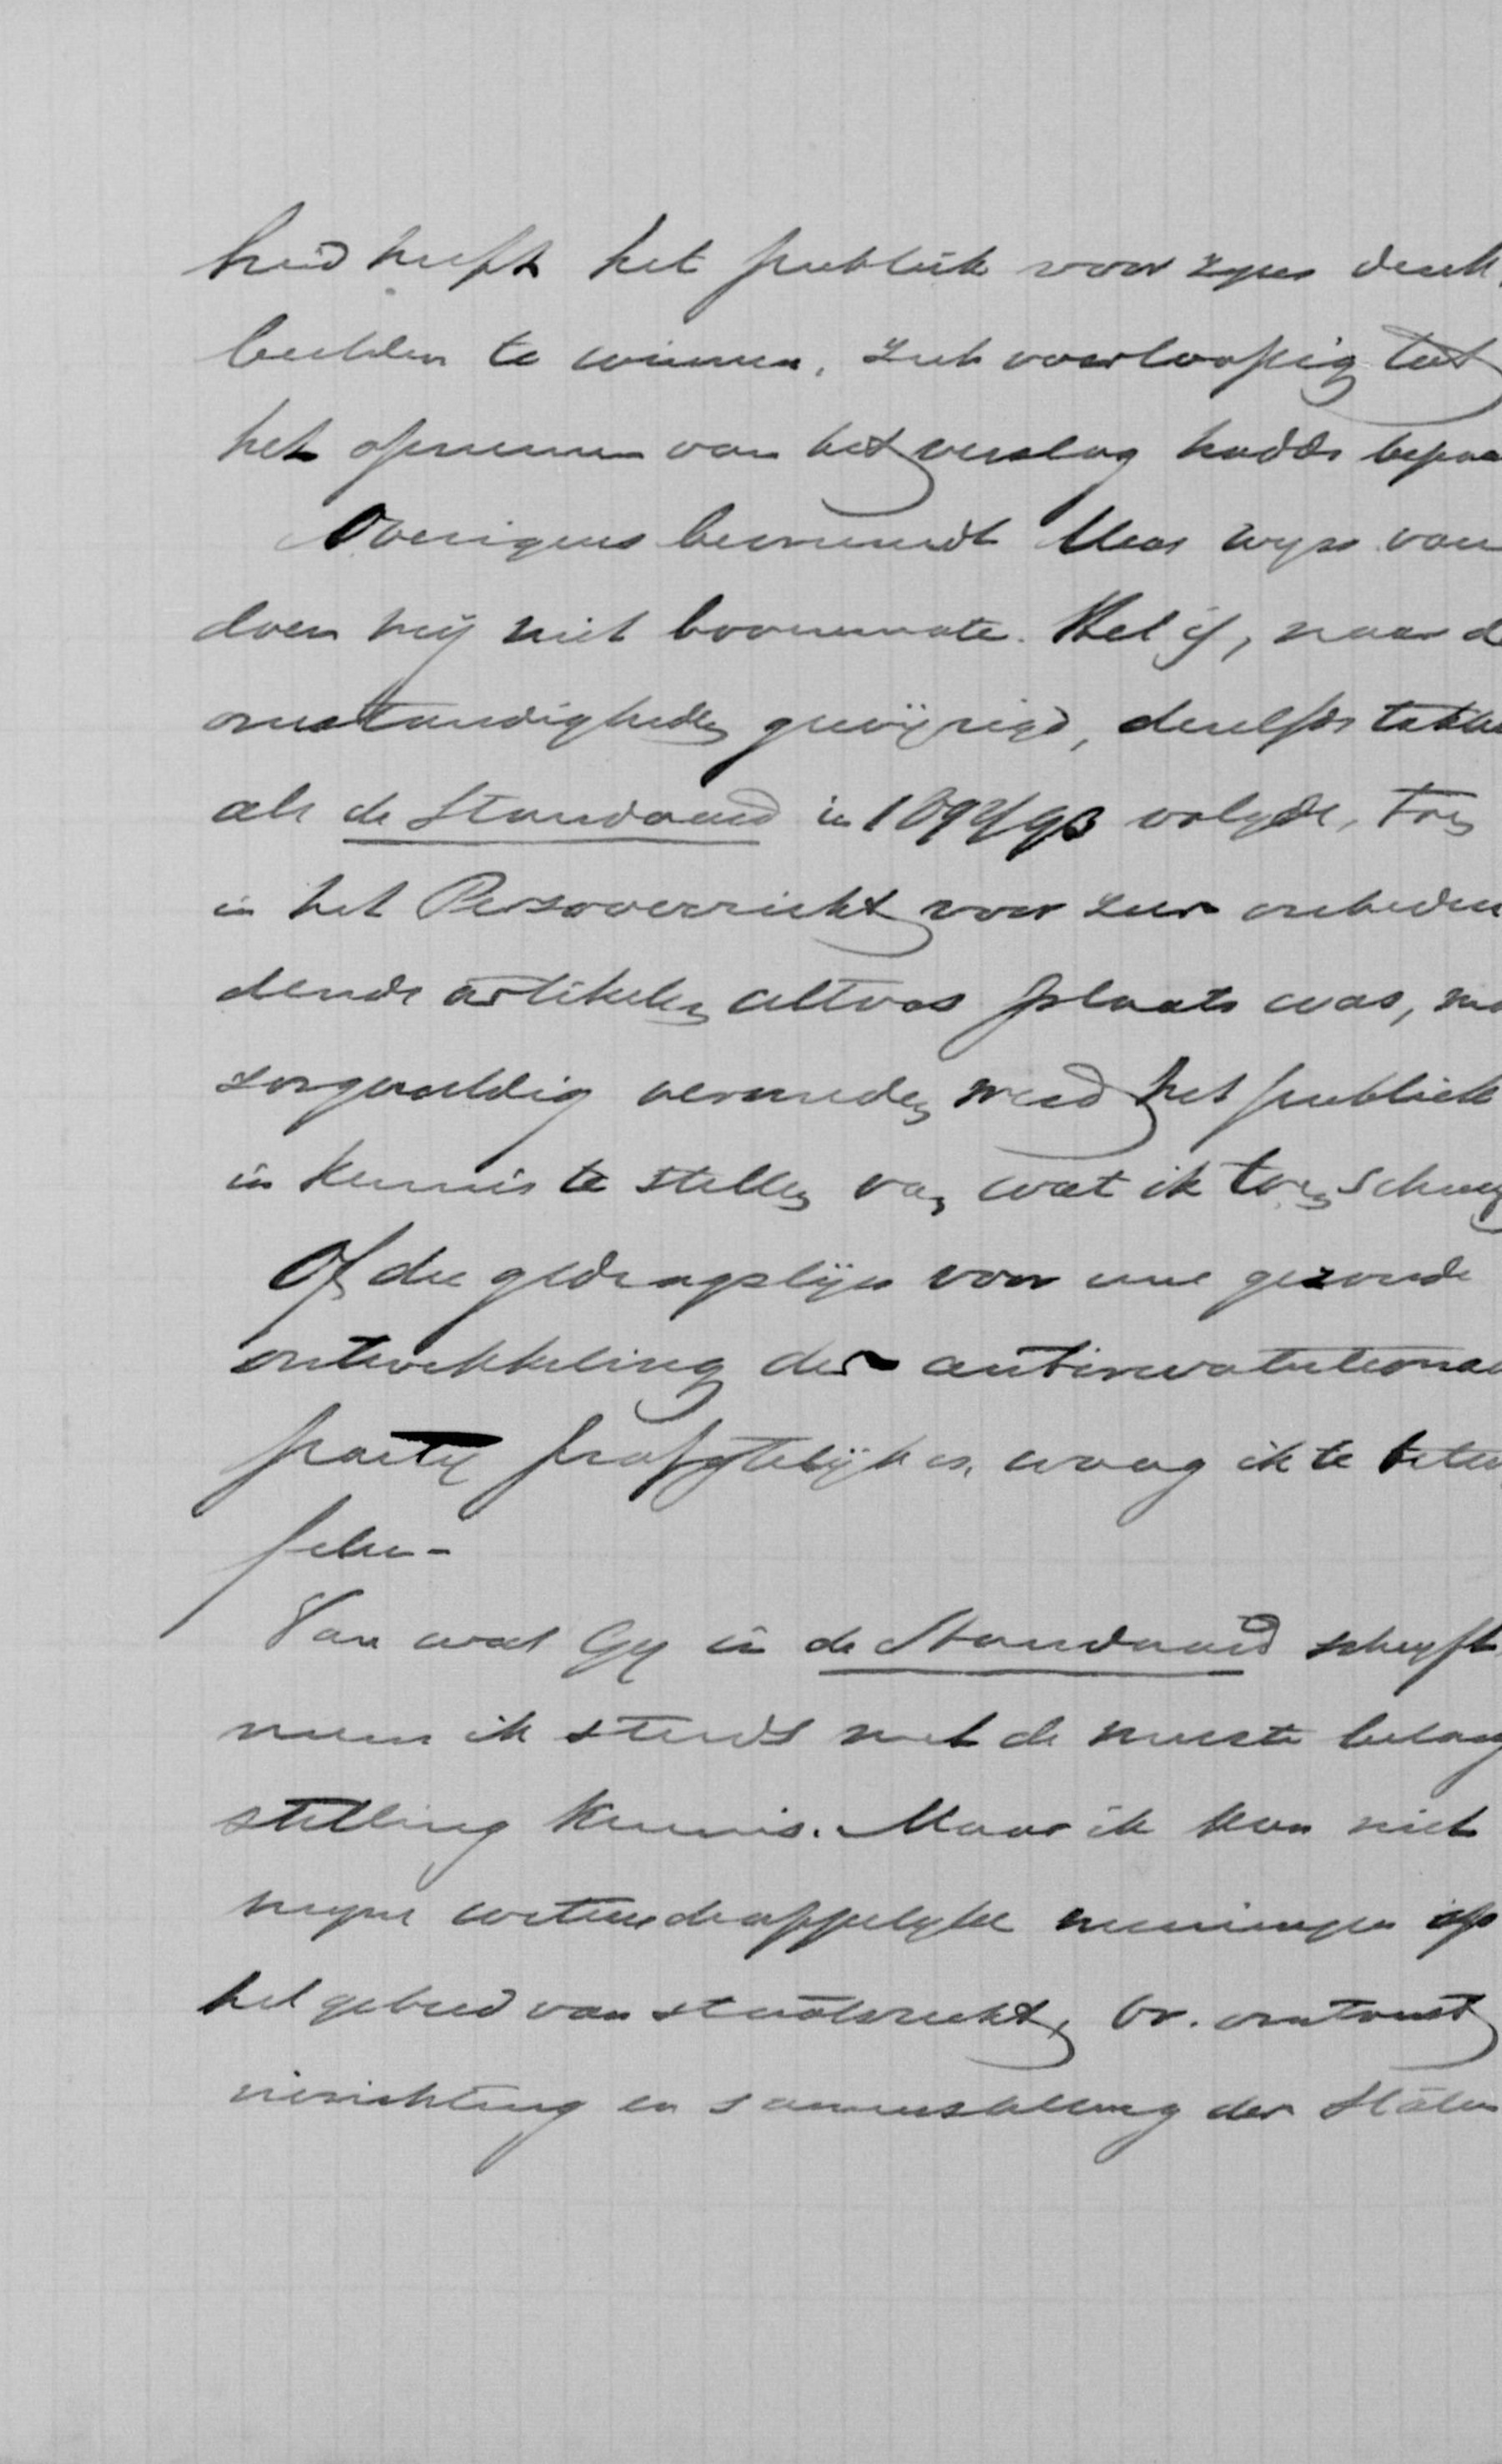 heid heeft het publiek voor zyne denk-
beelden te winnen, zich voorloopig tot
het opnemen van het verslag hadde bepaa
Overigens bevreemdt Uwe wyze van
doen mij niet bovenmate. Het is, naar d
omstandigheden gewijzigd, dezelfde taktie
als de Standaard in 1892/93 volgde, toen
in het Persoverzicht voor zeer onbedui
dende artikelen altoos plaats was, ma
zorgvuldig vermeden werd het publiek
in kennis te stellen van wat ik toen schreef
Of die gedragslijn voor eene gezonde
ontwikkeling der antirevolutionai
party profytelijk is, waag ik te betwy
felen -
Van wat Gy in de Standaard schryft
neem ik steeds met de meeste belang
stelling kennis. Maar ik kan niet
myne wetenschappelyke meeningen op
het gebied van staatsrecht, bv. omtrent
inrichting en samenstelling der Staten